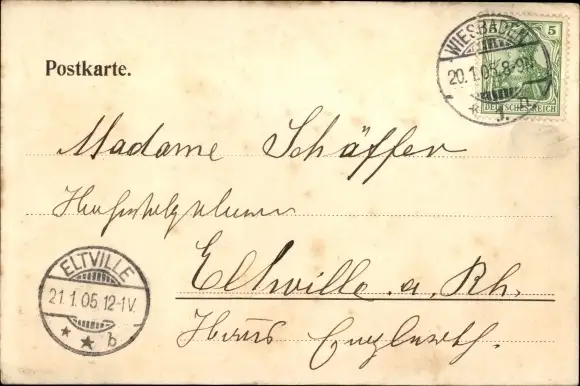 Postkarte.
WIESBADEN
20.1.05.8-9N.
5
DEUTSCHES REICH
Madame Schäffer
Eltville a. Rh.
Haus
ELTVILLE
21.1.05.12-1V.
* * b